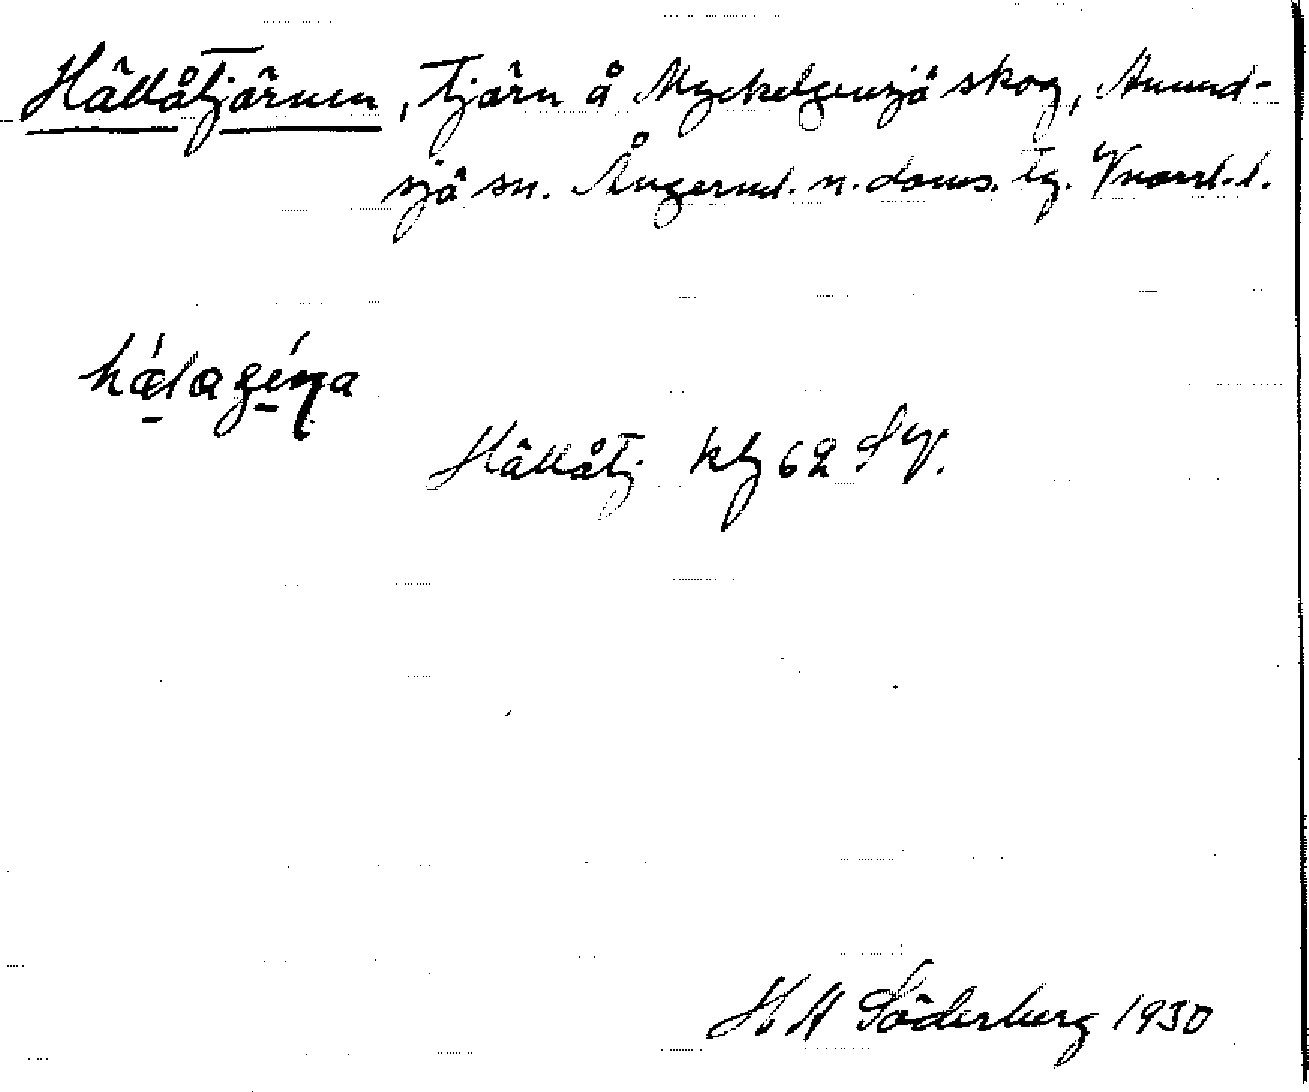 Hällåtjärnen, tjärn å Myckelgensjö skog, Anund-
sjö sn. Ångerml. n. doms. tg. Vnorrl. l.
Hällåtj. kbl 62 Sv.
H A Söderberg 1930